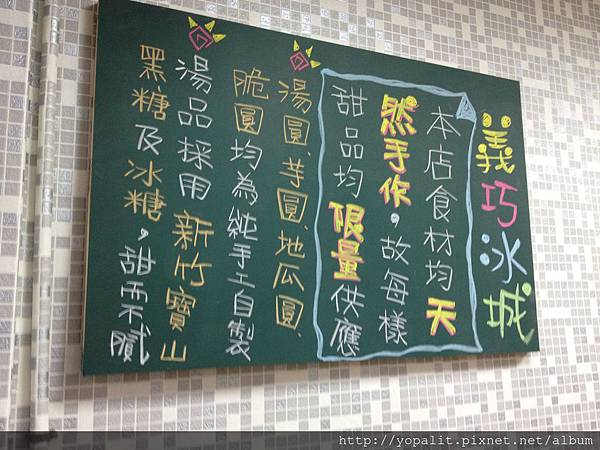 義巧冰城
本店食材均天
然手作，故每樣
甜品均限量供應
湯圓、芋圓、地瓜圓、
脆圓均為純手工自製
湯品採用新竹寶山
黑糖及冰糖，甜而不膩
http://yopalit.pixnet.net/album